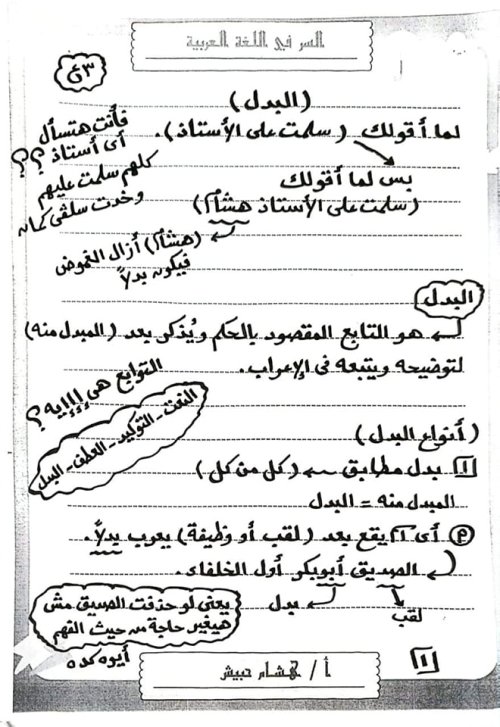 السر في اللغة العربية
٣ث
(البدل)
لما أقولك (سلمت على الأستاذ).
فأنت هتسأل
أى أستاذ ؟؟
كلهم سلمت عليهم
وخدت سلفى كمان
بس لما أقولك
(سلمت على الأستاذ هشام)
(هشام) أزال الغموض
فيكون بدلاً
البدل
هو التابع المقصود بالحكم ويُذكر بعد (المبدل منه)
لتوضيحه ويتبعه فى الإعراب.
التوابع هى إإإإيه؟
النعت - التوكيد - العطف - البدل
(أنواع البدل)
١ بدل مطابق (كل من كل)
المبدل منه = البدل
أى يقع بعد (لقب أو وظيفة) يعرب بدلاً.
الصديق أبوبكر أول الخلفاء.
لقب
بدل
يعنى لو حذفت الصديق مش
هيغير حاجة من حيث الفهم
أيوه كده
١
أ / هشام حبيش